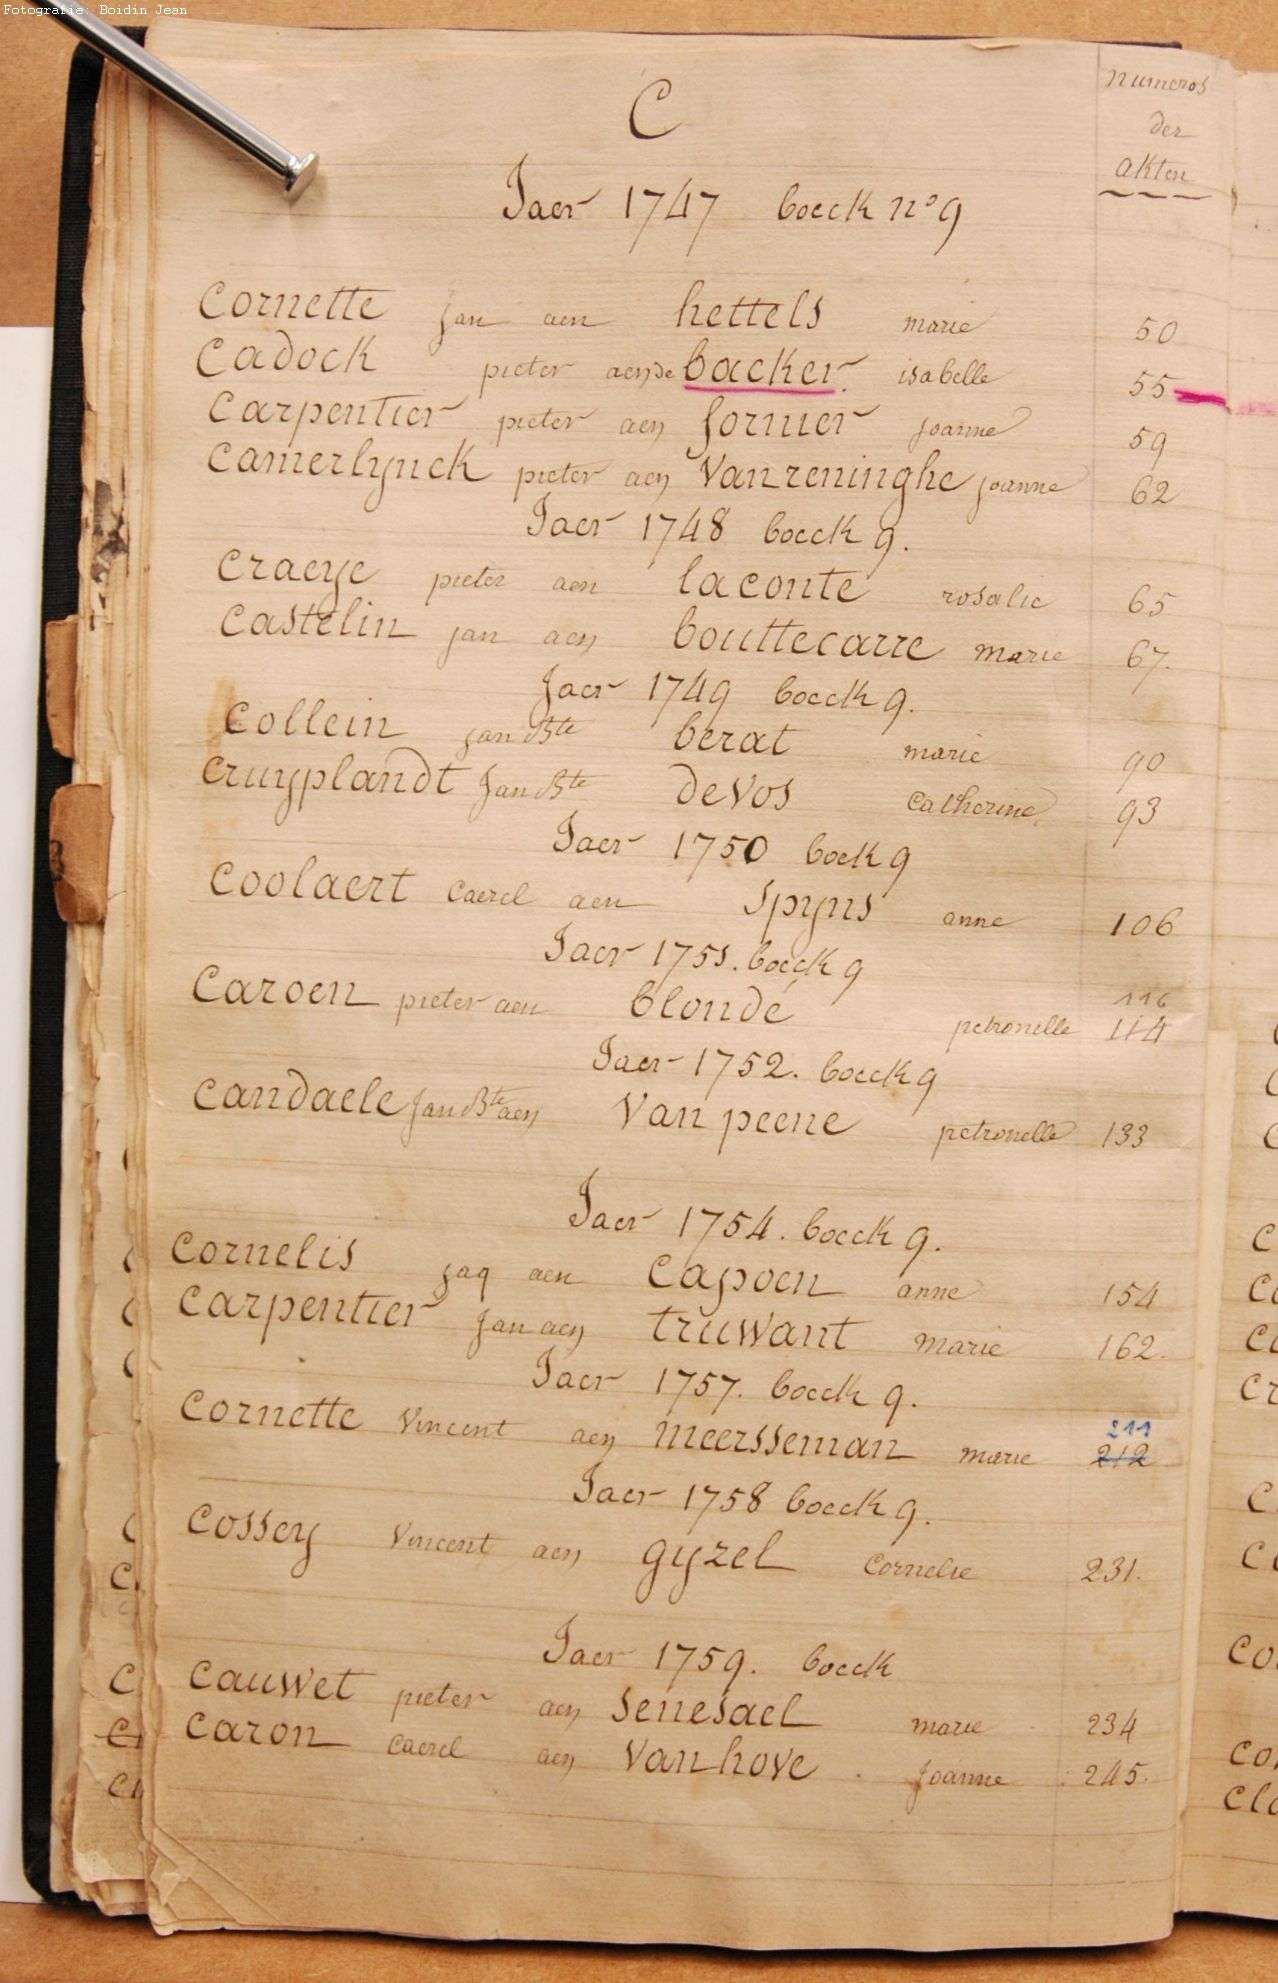 Fotografie: Boidin Jean
C
numeros
der
akten
Jaer 1747 boeck n° 9
Cornette jan aen hettels marie 50
Cadock pieter aen de backer isabelle 55
Carpentier pieter aen fornier joanne 59
Camerlynck pieter aen Vanreninghe joanne 62
Jaer 1748 boeck 9.
Craeye pieter aen laconte rosalie 65
Castelin jan aen bouttecarre marie 67.
Jaer 1749 boeck 9.
Collein jan Bte berat marie 90
Cruyplandt jan Bte devos Catherine 93
Jaer 1750 boek 9
Coolaert Caerel aen Spyns anne 106
Jaer 1751. boeck 9
Caroen pieter aen blondé petronelle 116 114
Jaer 1752. boeck 9
Candaele jan Bte aen Van peene petronelle 133
Jaer 1754. boeck 9.
Cornelis jaq aen Capoen anne 154
Carpentier jan aen truwant marie 162.
Jaer 1757. boeck 9.
Cornette Vincent aen meersseman marie 211 212
Jaer 1758 boeck 9.
Cossey Vincent aen gyzel Cornelie 231.
Jaer 1759. boeck
Cauwet pieter aen Senesael marie 234
Caron Caerel aen Vanhove joanne 245.